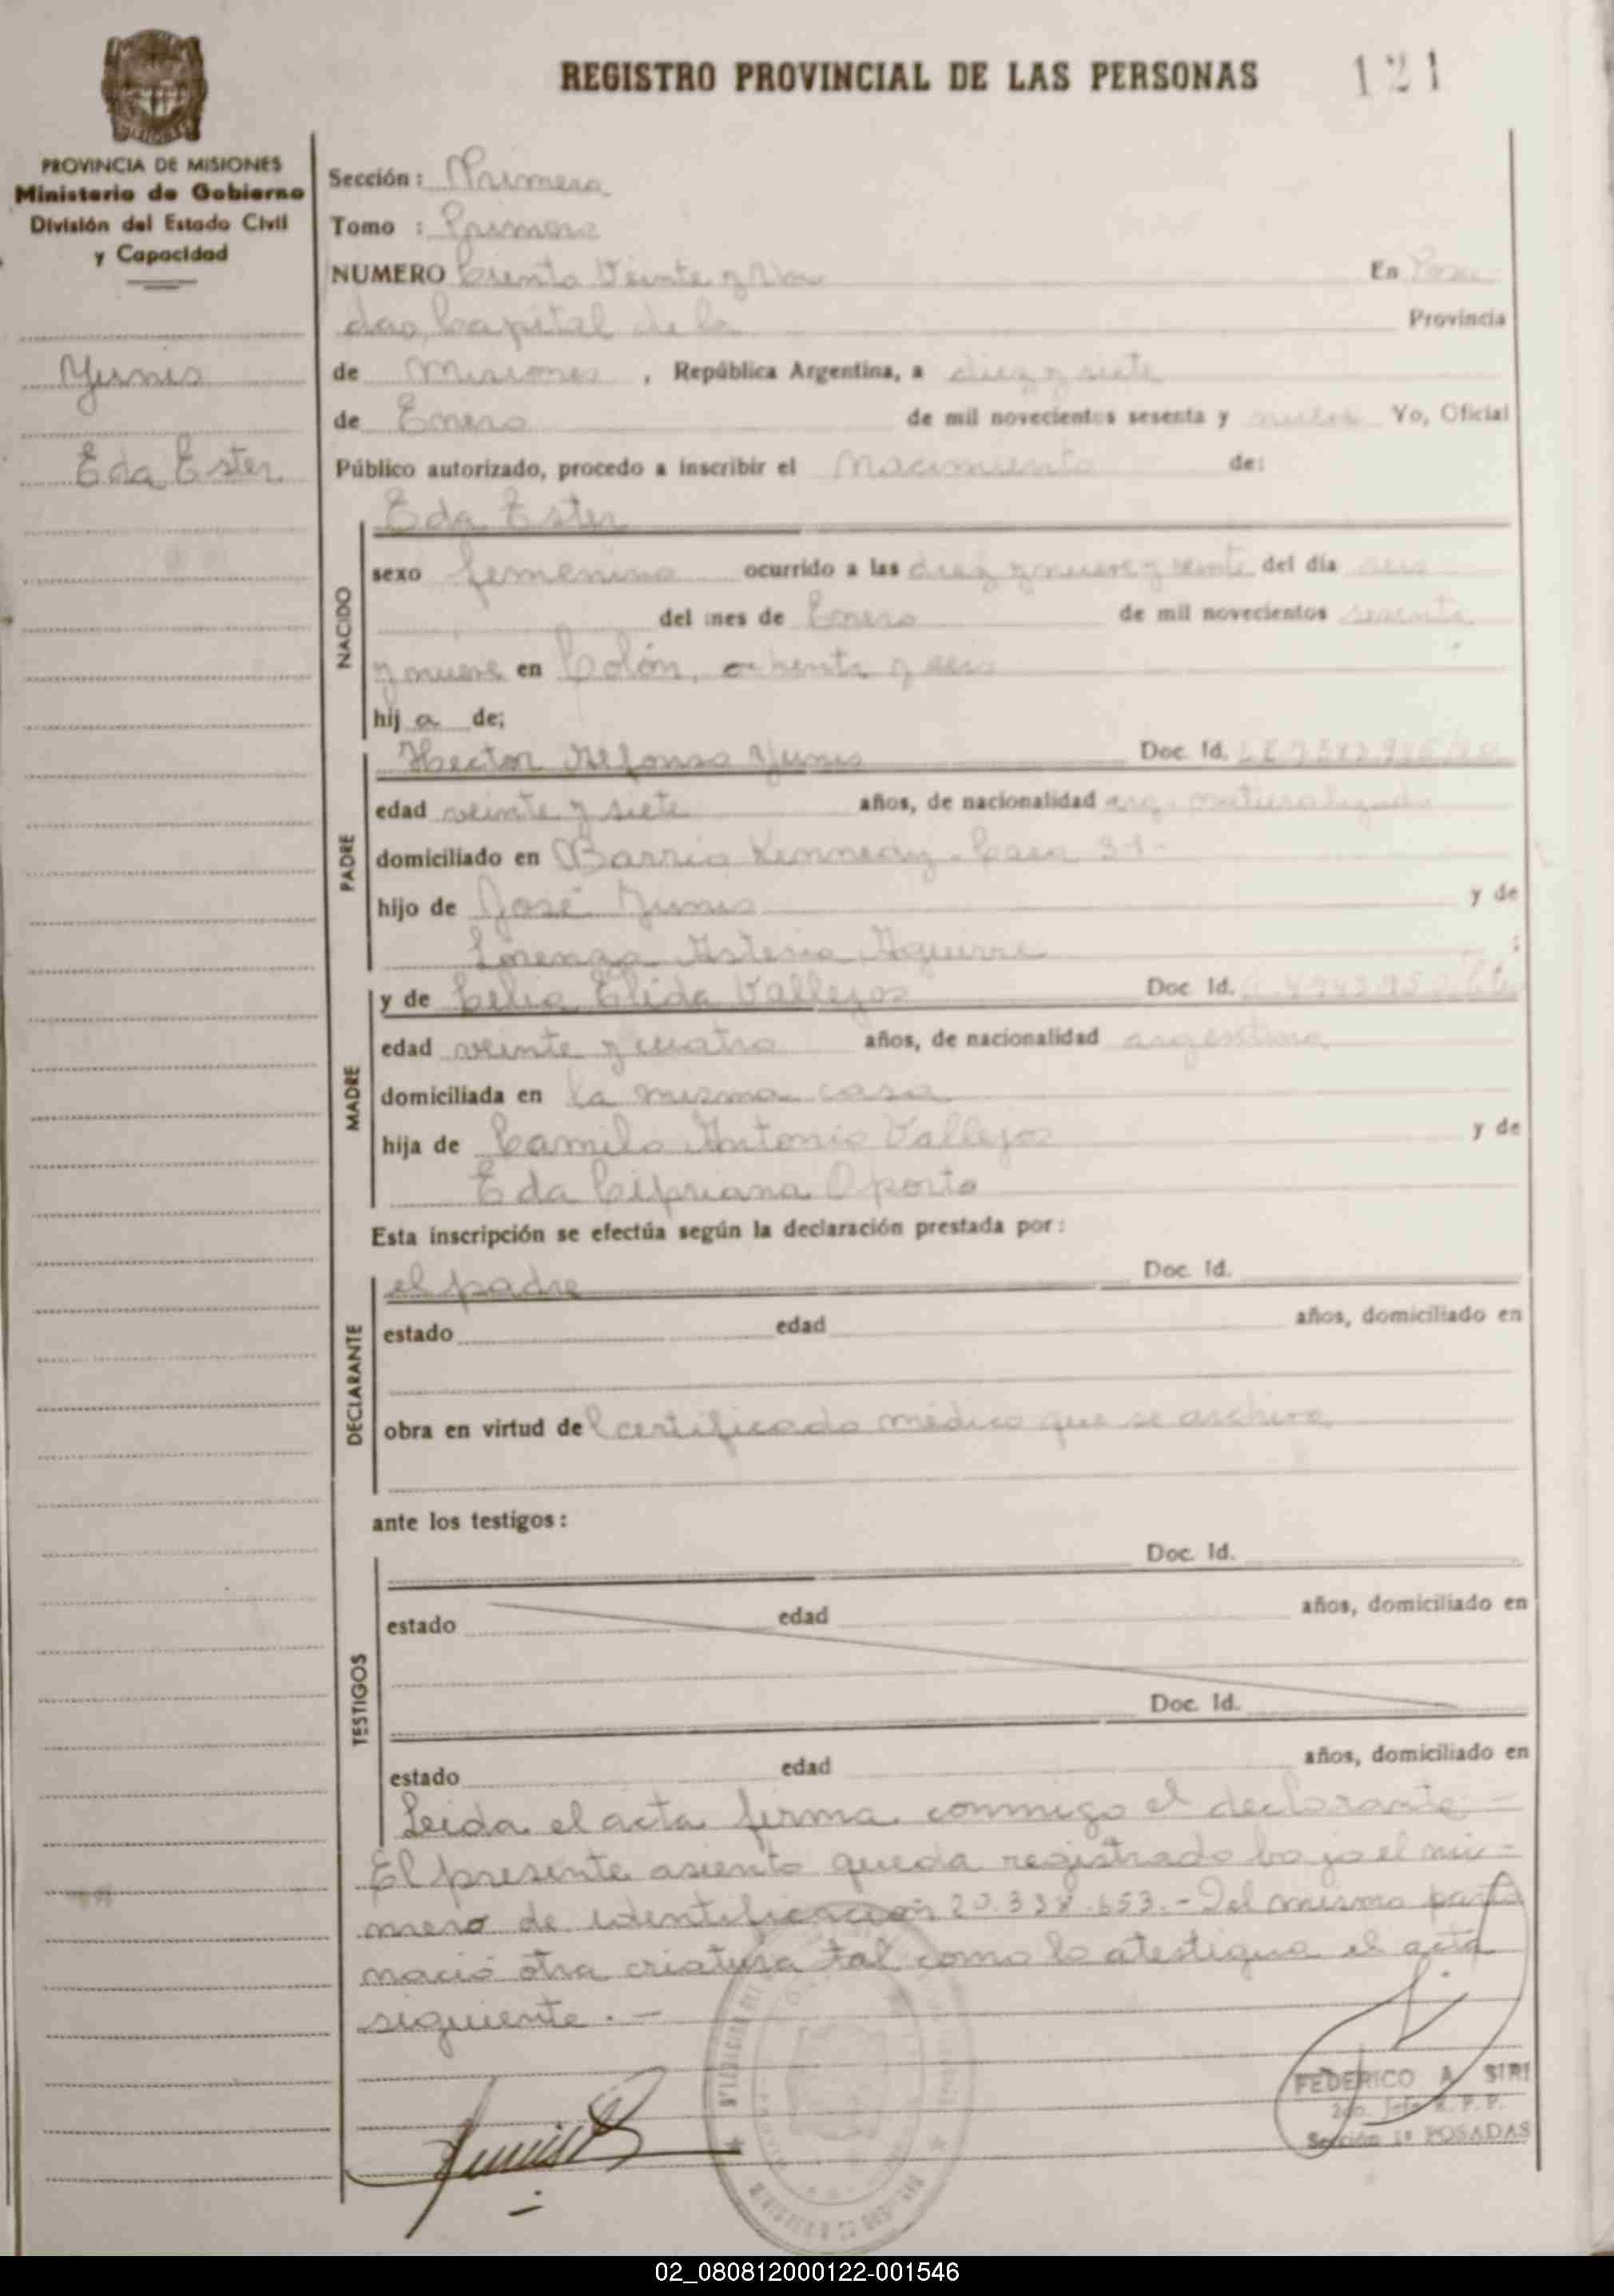 REGISTRO PROVINCIAL DE LAS PERSONAS
121
PROVINCIA DE MISIONES
Ministerio de Gobierno
División del Estado Civil
y Capacidad
Yunis
Eda Ester
Sección: Primera
Tomo : Primero
NUMERO Ciento Veinte y Un En Posa
das, Capital de la Provincia
de Misiones, República Argentina, a diez y siete
de Enero de mil novecientos sesenta y nueve Yo, Oficial
Público autorizado, procedo a inscribir el Nacimiento de:
Eda Ester
NACIDO
sexo femenino ocurrido a las diez y nueve y veinte del día seis
del mes de Enero de mil novecientos sesenta
y nueve en Colón, ochenta y seis
hija de;
PADRE
Hector Alfonso Yunis Doc. Id. LE
edad veinte y siete años, de nacionalidad arg. naturalizado
domiciliado en Barrio Kennedy - Casa 31-
hijo de José Yunis y de
Lorenza Asteria Aguirre ;
MADRE
y de Celia Elida Vallejos Doc. Id.
edad veinte y cuatro años, de nacionalidad argentina
domiciliada en la misma casa
hija de Camilo Antonio Vallejos y de
Eda Cipriana Oporto
Esta inscripción se efectúa según la declaración prestada por:
DECLARANTE
el padre Doc. Id.
estado edad años, domiciliado en
obra en virtud del certificado médico que se archiva
ante los testigos:
TESTIGOS
Doc. Id.
estado edad años, domiciliado en
Doc. Id.
estado edad años, domiciliado en
Leida el acta firma conmigo el declarante -
El presente asiento queda registrado bajo el nú-
mero de identificación 20.338.653.- Del mismo parto
nació otra criatura tal como lo atestigua el acta
siguiente. -
FEDERICO A. SIRI
Sección 1ª POSADAS
02_080812000122-001546